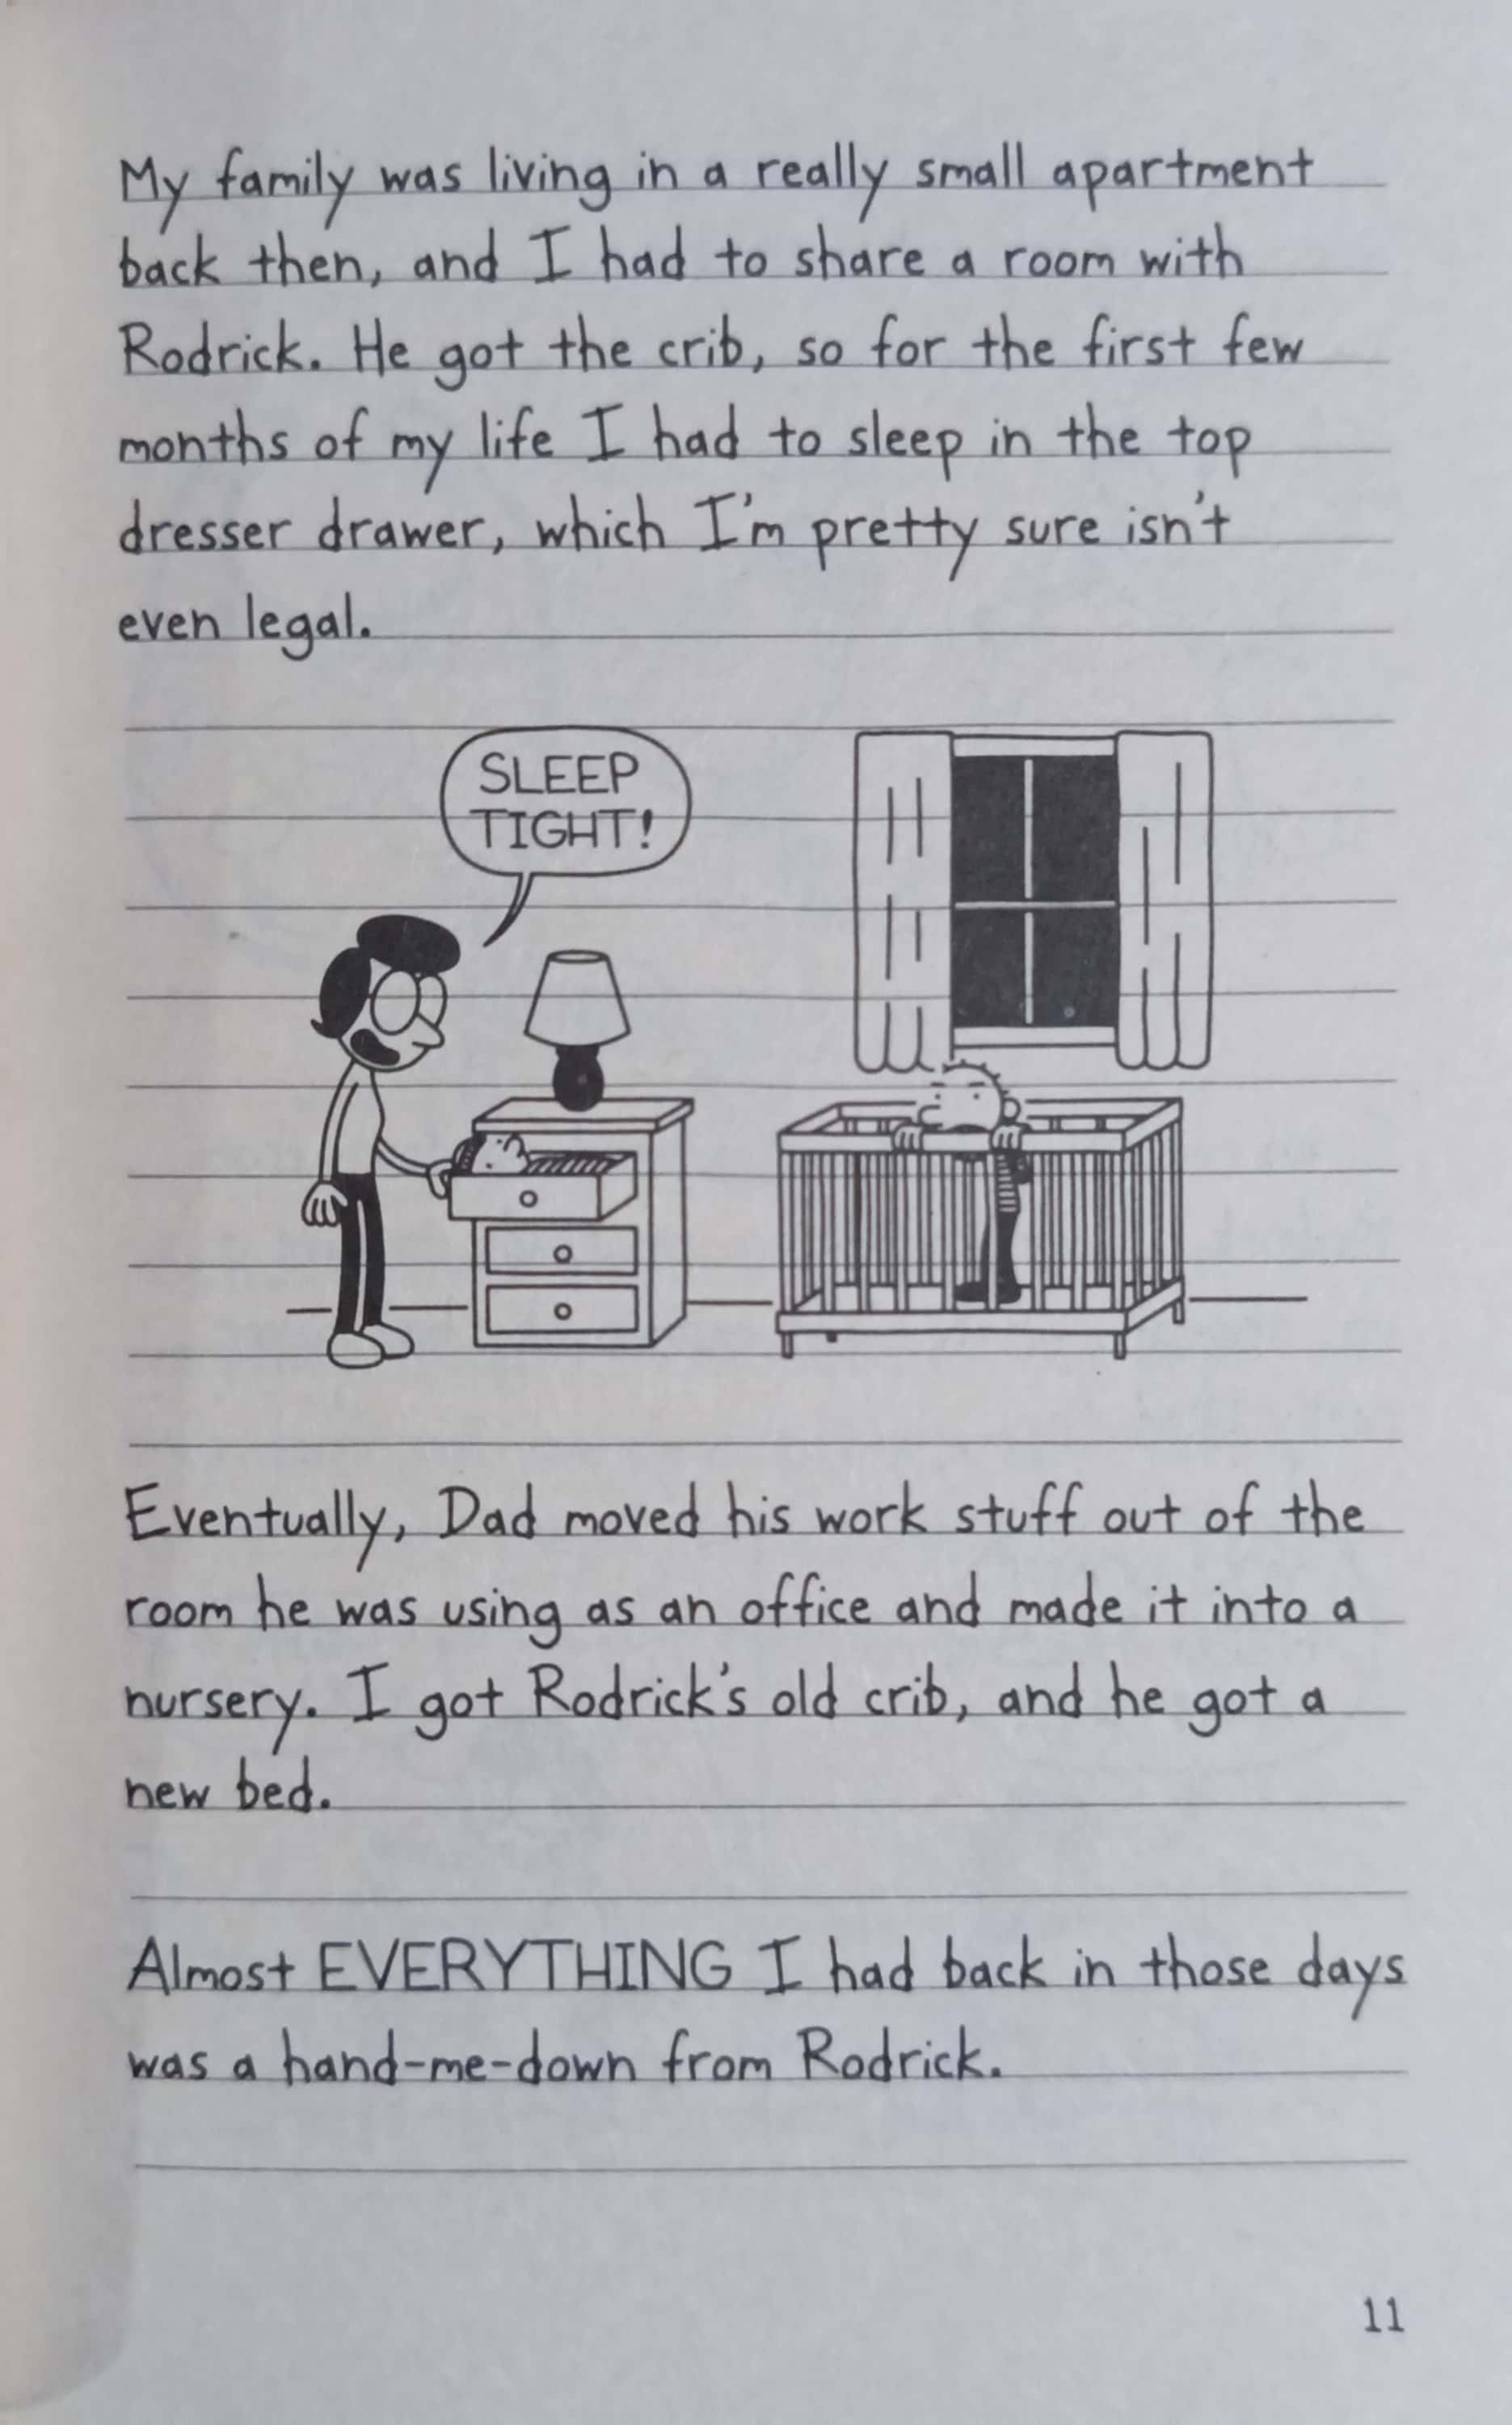 My family was living in a really small apartment
back then, and I had to share a room with
Rodrick. He got the crib, so for the first few
months of my life I had to sleep in the top
dresser drawer, which I'm pretty sure isn't
even legal.
SLEEP
TIGHT!
Eventually, Dad moved his work stuff out of the
room he was using as an office and made it into a
nursery. I got Rodrick's old crib, and he got a
new bed.
Almost EVERYTHING I had back in those days
was a hand-me-down from Rodrick.
11